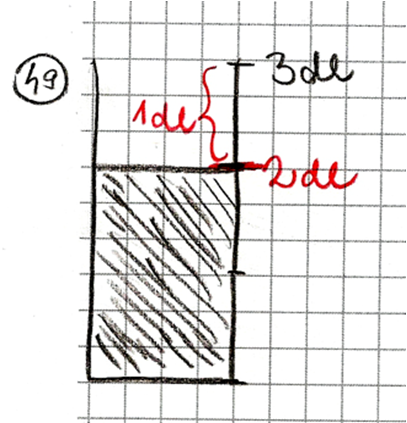 49
3dl
1dl
2dl